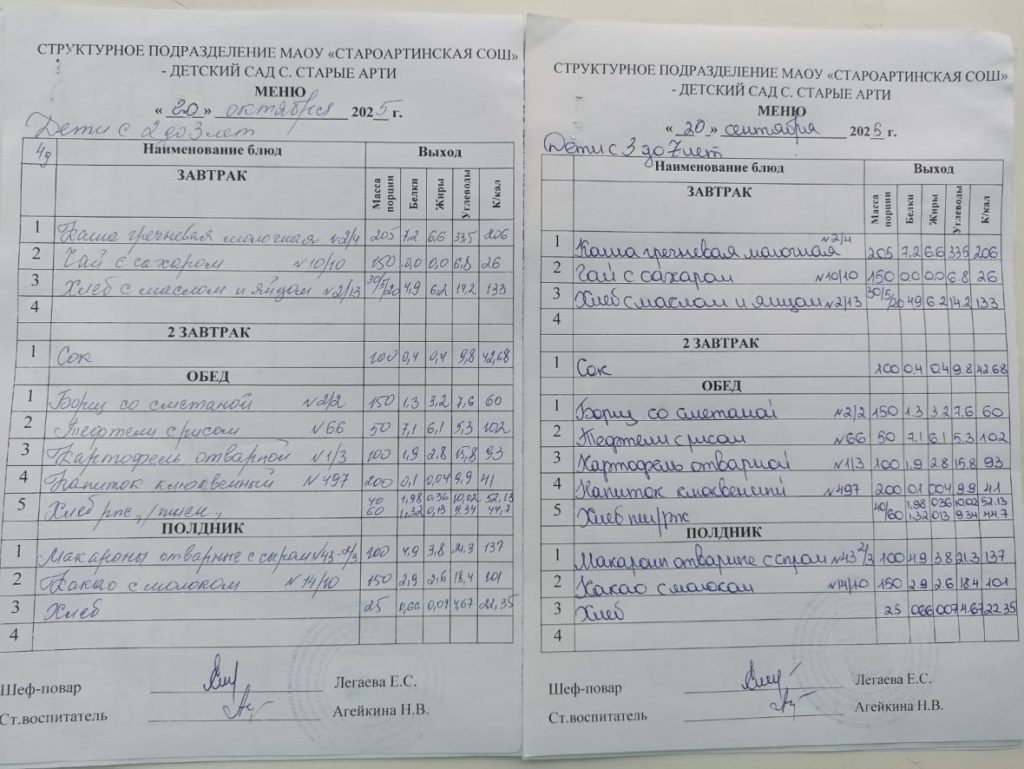 СТРУКТУРНОЕ ПОДРАЗДЕЛЕНИЕ МАОУ «СТАРОАРТИНСКАЯ СОШ»
- ДЕТСКИЙ САД С. СТАРЫЕ АРТИ
МЕНЮ
« 20 » октября 2025 г.
Дети с 2 до 3 лет
4д Наименование блюд Выход
ЗАВТРАК Масса порции Белки Жиры Углеводы К/кал
1 Каша гречневая молочная №2/4 205 7,2 6,6 335 206
2 Чай с сахаром №10/10 150 0,0 0,0 6,8 26
3 Хлеб с маслом и яйцом №2/13 30/5/20 4,9 6,2 14,2 133
4
2 ЗАВТРАК
1 Сок 100 0,4 0,4 9,8 42,68
ОБЕД
1 Борщ со сметаной №2/2 150 1,3 3,2 7,6 60
2 Тефтели с рисом №66 50 7,1 6,1 5,3 102
3 Картофель отварной №1/3 100 1,9 2,8 15,8 93
4 Напиток клюквенный №497 200 0,1 0,04 9,9 41
5 Хлеб рж., / пшен., 40 1,98 0,36 10,02 52,13
60 1,32 0,13 9,34 44,7
ПОЛДНИК
1 Макароны отварные с сыром №43-2/3 100 4,9 3,8 21,3 137
2 Какао с молоком №14/10 150 2,9 2,6 18,4 101
3 Хлеб 25 0,66 0,07 4,67 22,35
4
Шеф-повар Легаева Е.С.
Ст.воспитатель Агейкина Н.В.
СТРУКТУРНОЕ ПОДРАЗДЕЛЕНИЕ МАОУ «СТАРОАРТИНСКАЯ СОШ»
- ДЕТСКИЙ САД С. СТАРЫЕ АРТИ
МЕНЮ
« 20 » сентября 2025 г.
Дети с 3 до 7 лет
Наименование блюд Выход
ЗАВТРАК Масса порции Белки Жиры Углеводы К/кал
1 Каша гречневая молочная №2/4 205 7,2 6.6 335 206
2 Чай с сахаром №10/10 150 0.0 0.0 6.8 26
3 Хлеб с маслом и яйцом №2/13 30/5/20 4.9 6.2 14.2 133
4
2 ЗАВТРАК
1 Сок 100 0.4 0.4 9.8 42 68
ОБЕД
1 Борщ со сметаной №2/2 150 1.3 3.2 7.6 60
2 Тефтели с рисом №66 50 7.1 6.1 5.3 102
3 Картофель отварной №1/3 100 1.9 2.8 15.8 93
4 Напиток клюквенный №497 200 01 004 9.9 41
5 Хлеб пш/рж 40/60 1.98 036 10.02 52.13
1.32 013 9.34 44.7
ПОЛДНИК
1 Макароны отварные с сыром №43 2/3 100 4.9 3.8 21.3 137
2 Какао с молоком №14/10 150 2.9 2.6 18.4 101
3 Хлеб 25 066 007 4.67 22.35
4
Шеф-повар Легаева Е.С.
Ст.воспитатель Агейкина Н.В.